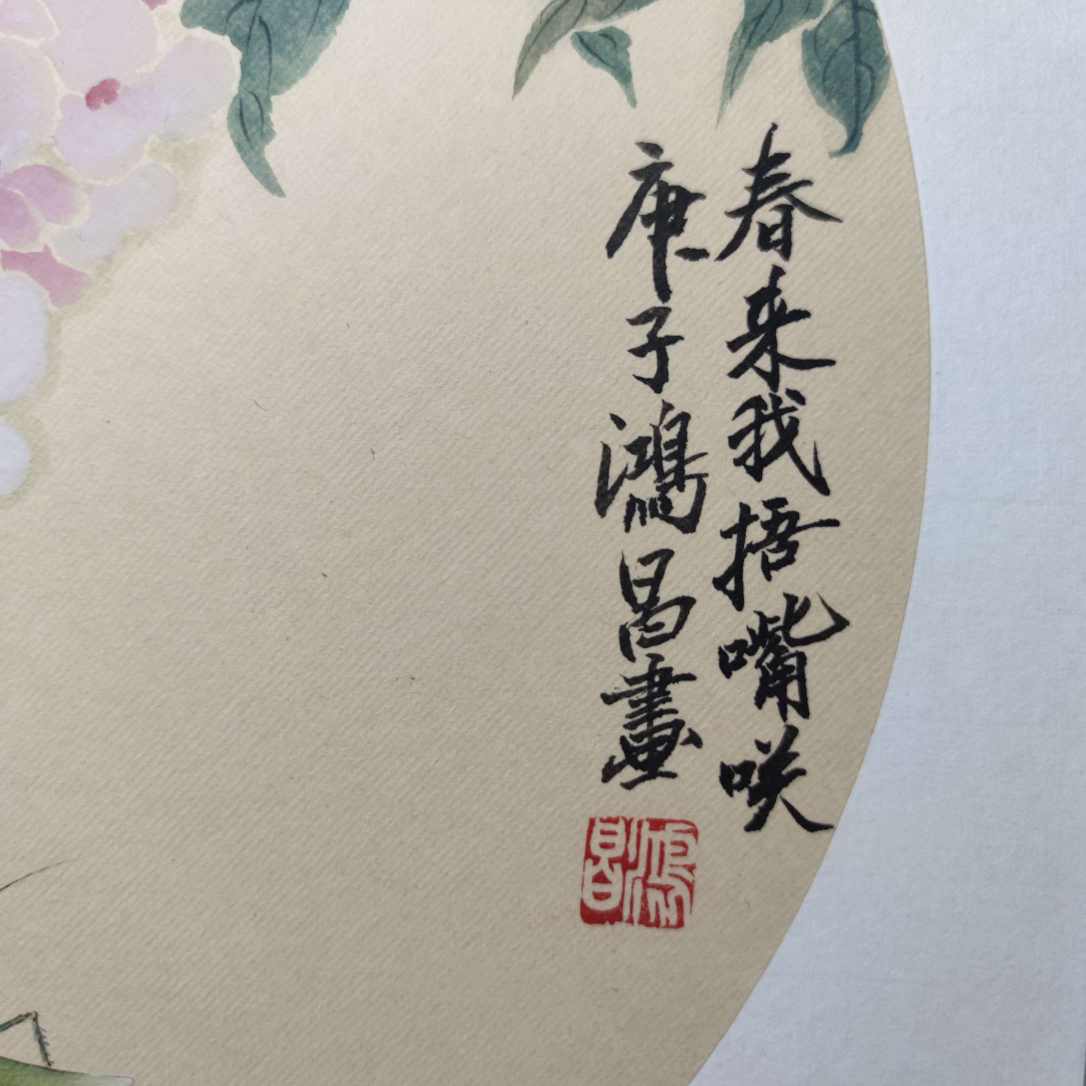 春来我捂嘴咲
庚子鴻昌畫
鴻昌